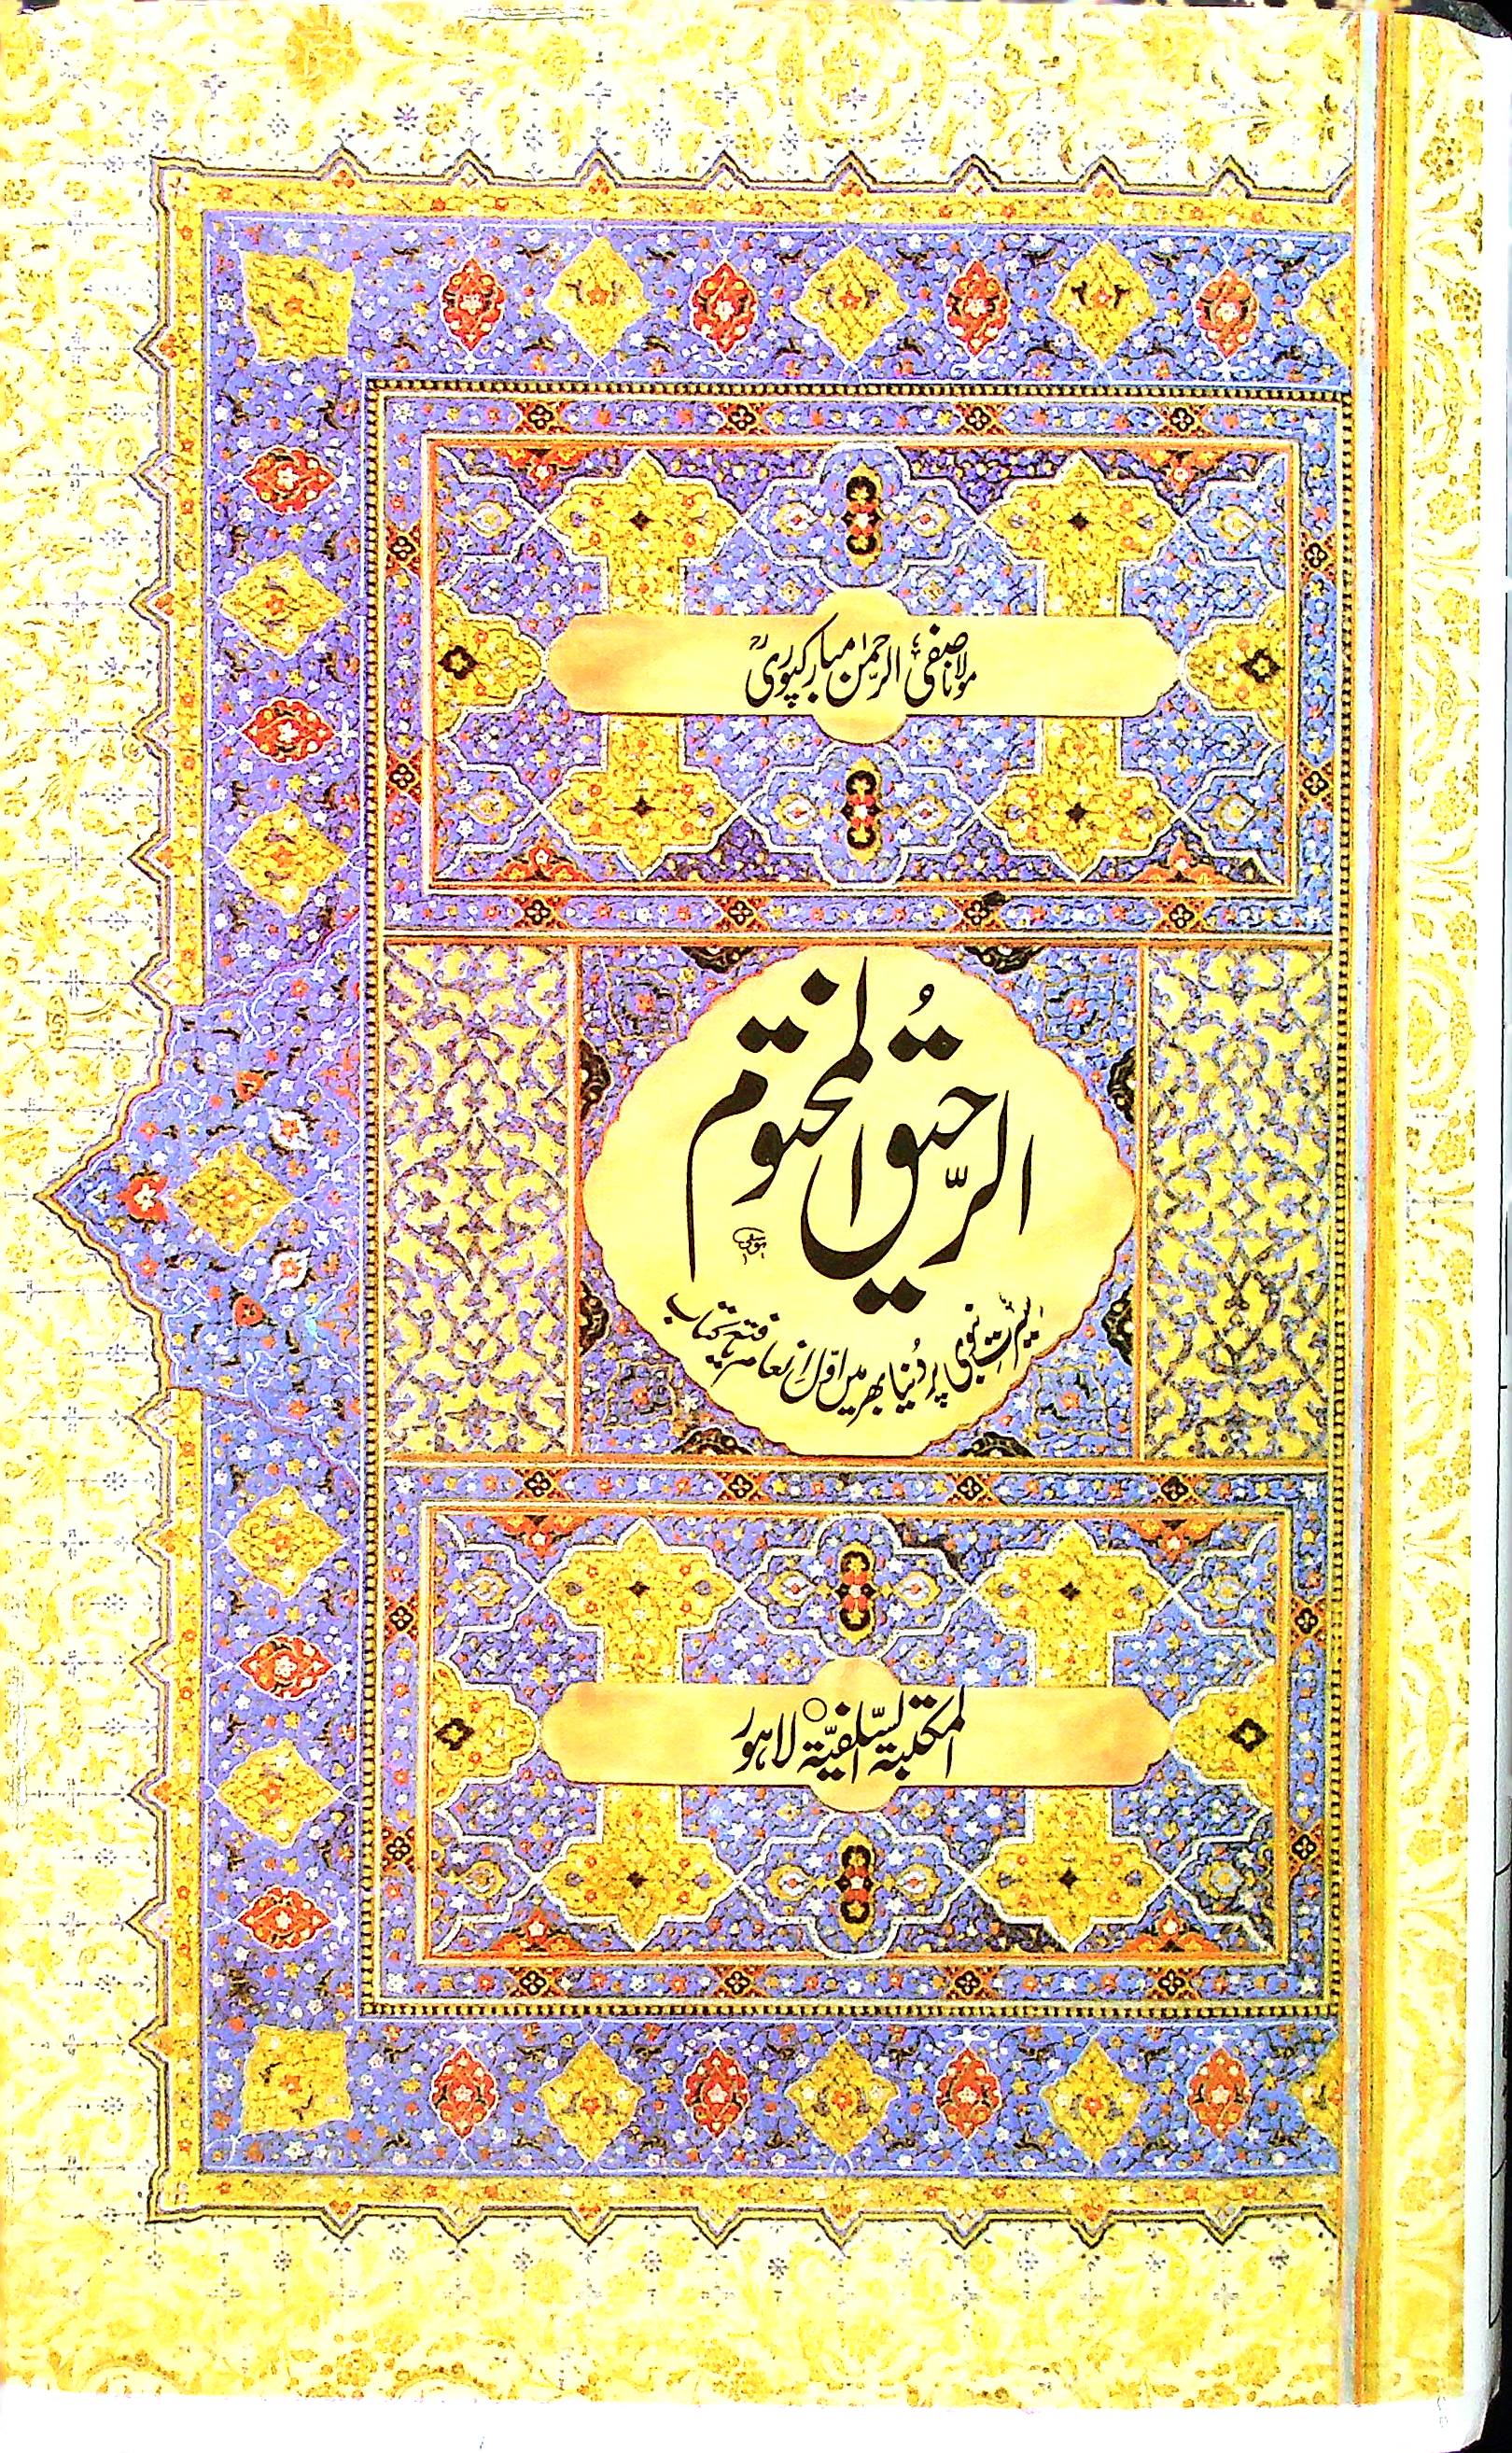 مولانا صفی الرحمٰن مبارکپوریؒ
الرّحیق المختوم
سیرت نبویؐ پر دُنیا بھر میں اوّل انعام یافتہ کتاب
المکتبة السّلفیّة لاہور